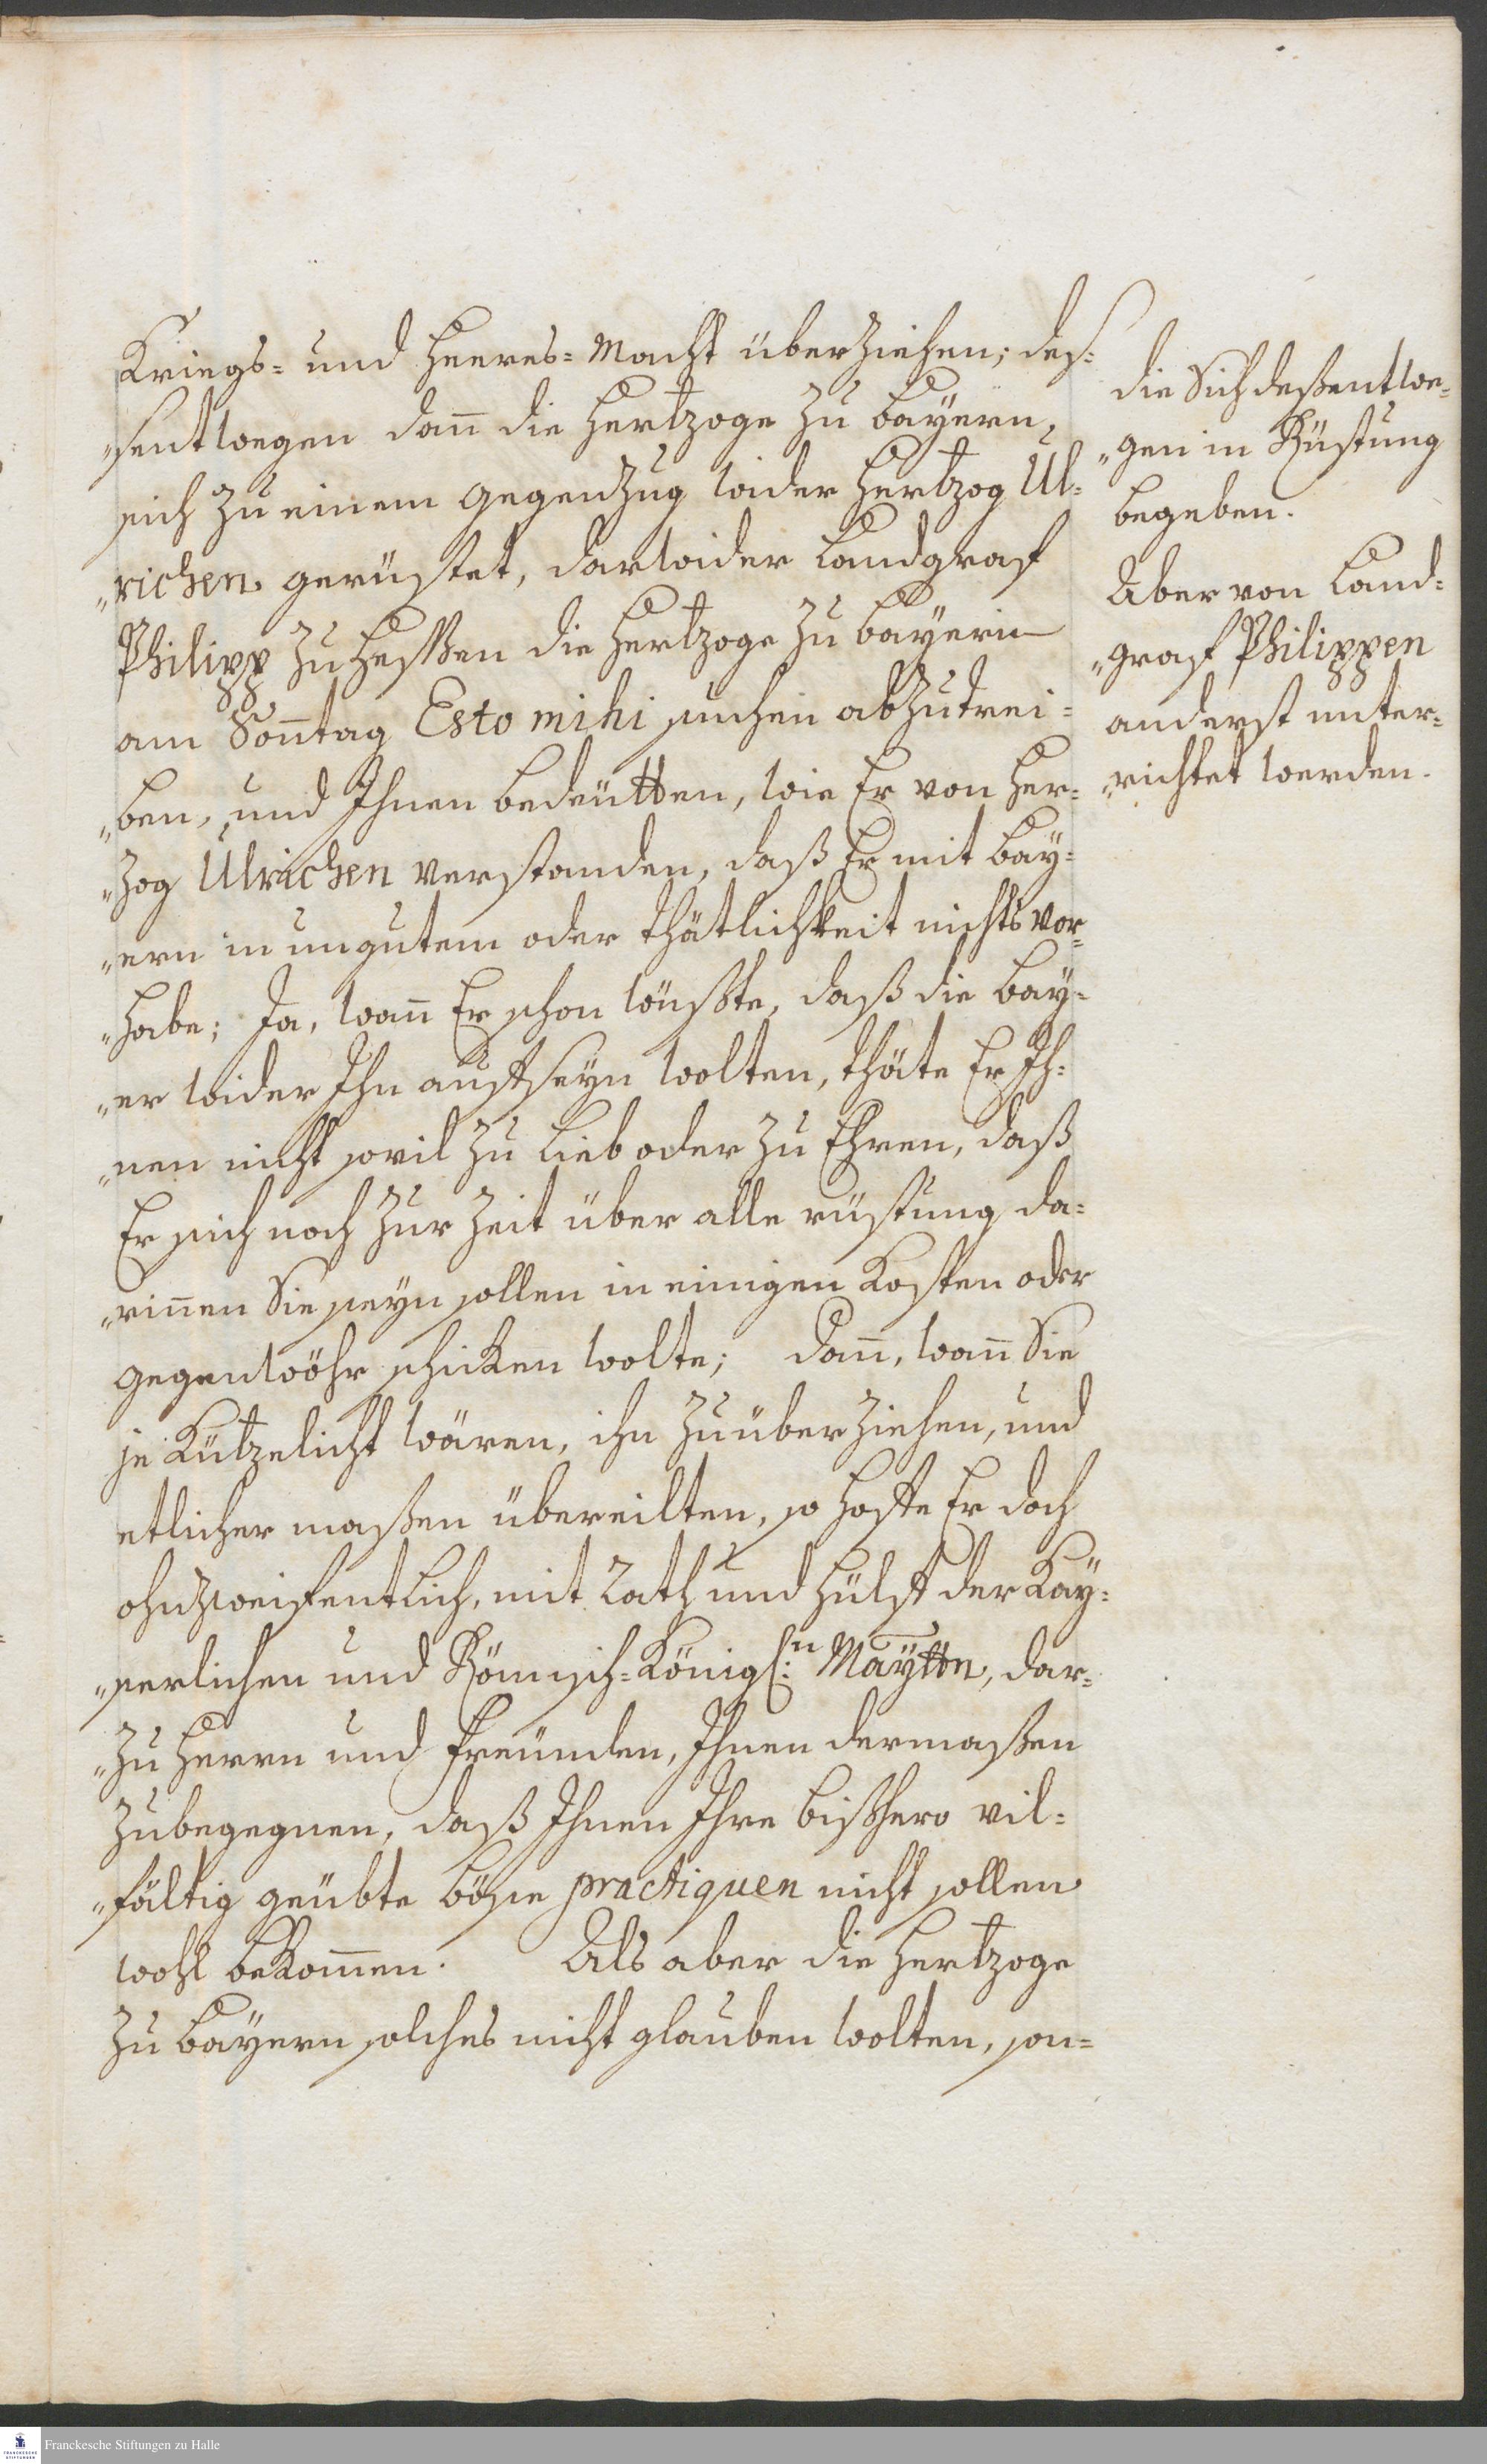 Kriegs= und Heeres=Macht überziehen; des=
„sentwegen dann die Hertzoge zu Bayern,
sich zu einem gegenzug wider Hertzog Ul=
„richen gerüstet, darwider Landgraf
Philipp zu Hessen die Hertzoge zu Bayern
am Sonntag Esto mihi suchen abzutrei=
„ben, und Ihnen bedeütten, wie Er von Her=
„zog Ulrichen verstanden, daß Er mit Bay=
„ern in ungutem oder thätlichkeit nichts vor=
„habe; Ja, wann Er schon wüßte, daß die Bay=
„er wider Ihn auffseyn wolten, thäte Er Ih=
„nen nicht sovil zu Lieb oder zu Ehren, daß
Er sich noch zur Zeit über alle rüstung da=
„rinnen Sie seyn sollen in einigen Kosten oder
gegenwöhr schicken wolte; dann, wann Sie
je Kützelicht wären, ihn zuüberziehen, und
etlicher maßen übereilten, so hoffe Er doch
ohnzweifentlich, mit Rath und Hülff der Kay=
„serlichen und Römisch=Königl:n Mayttn, dar=
„zu Herrn und Freünden, Ihnen dermaßen
zubegegnen, daß Ihnen Ihre bißhero vil=
„fältig geübte böse practiquen nicht sollen
wohl bekommen. Als aber die Hertzoge
zu Bayern solches nicht glauben wolten, son=
die Sich deßentwe=
„gen in Rüstung
begeben.
Aber von Land=
„graf Philippen
anderst unter=
„richtet werden.
Franckesche Stiftungen zu Halle